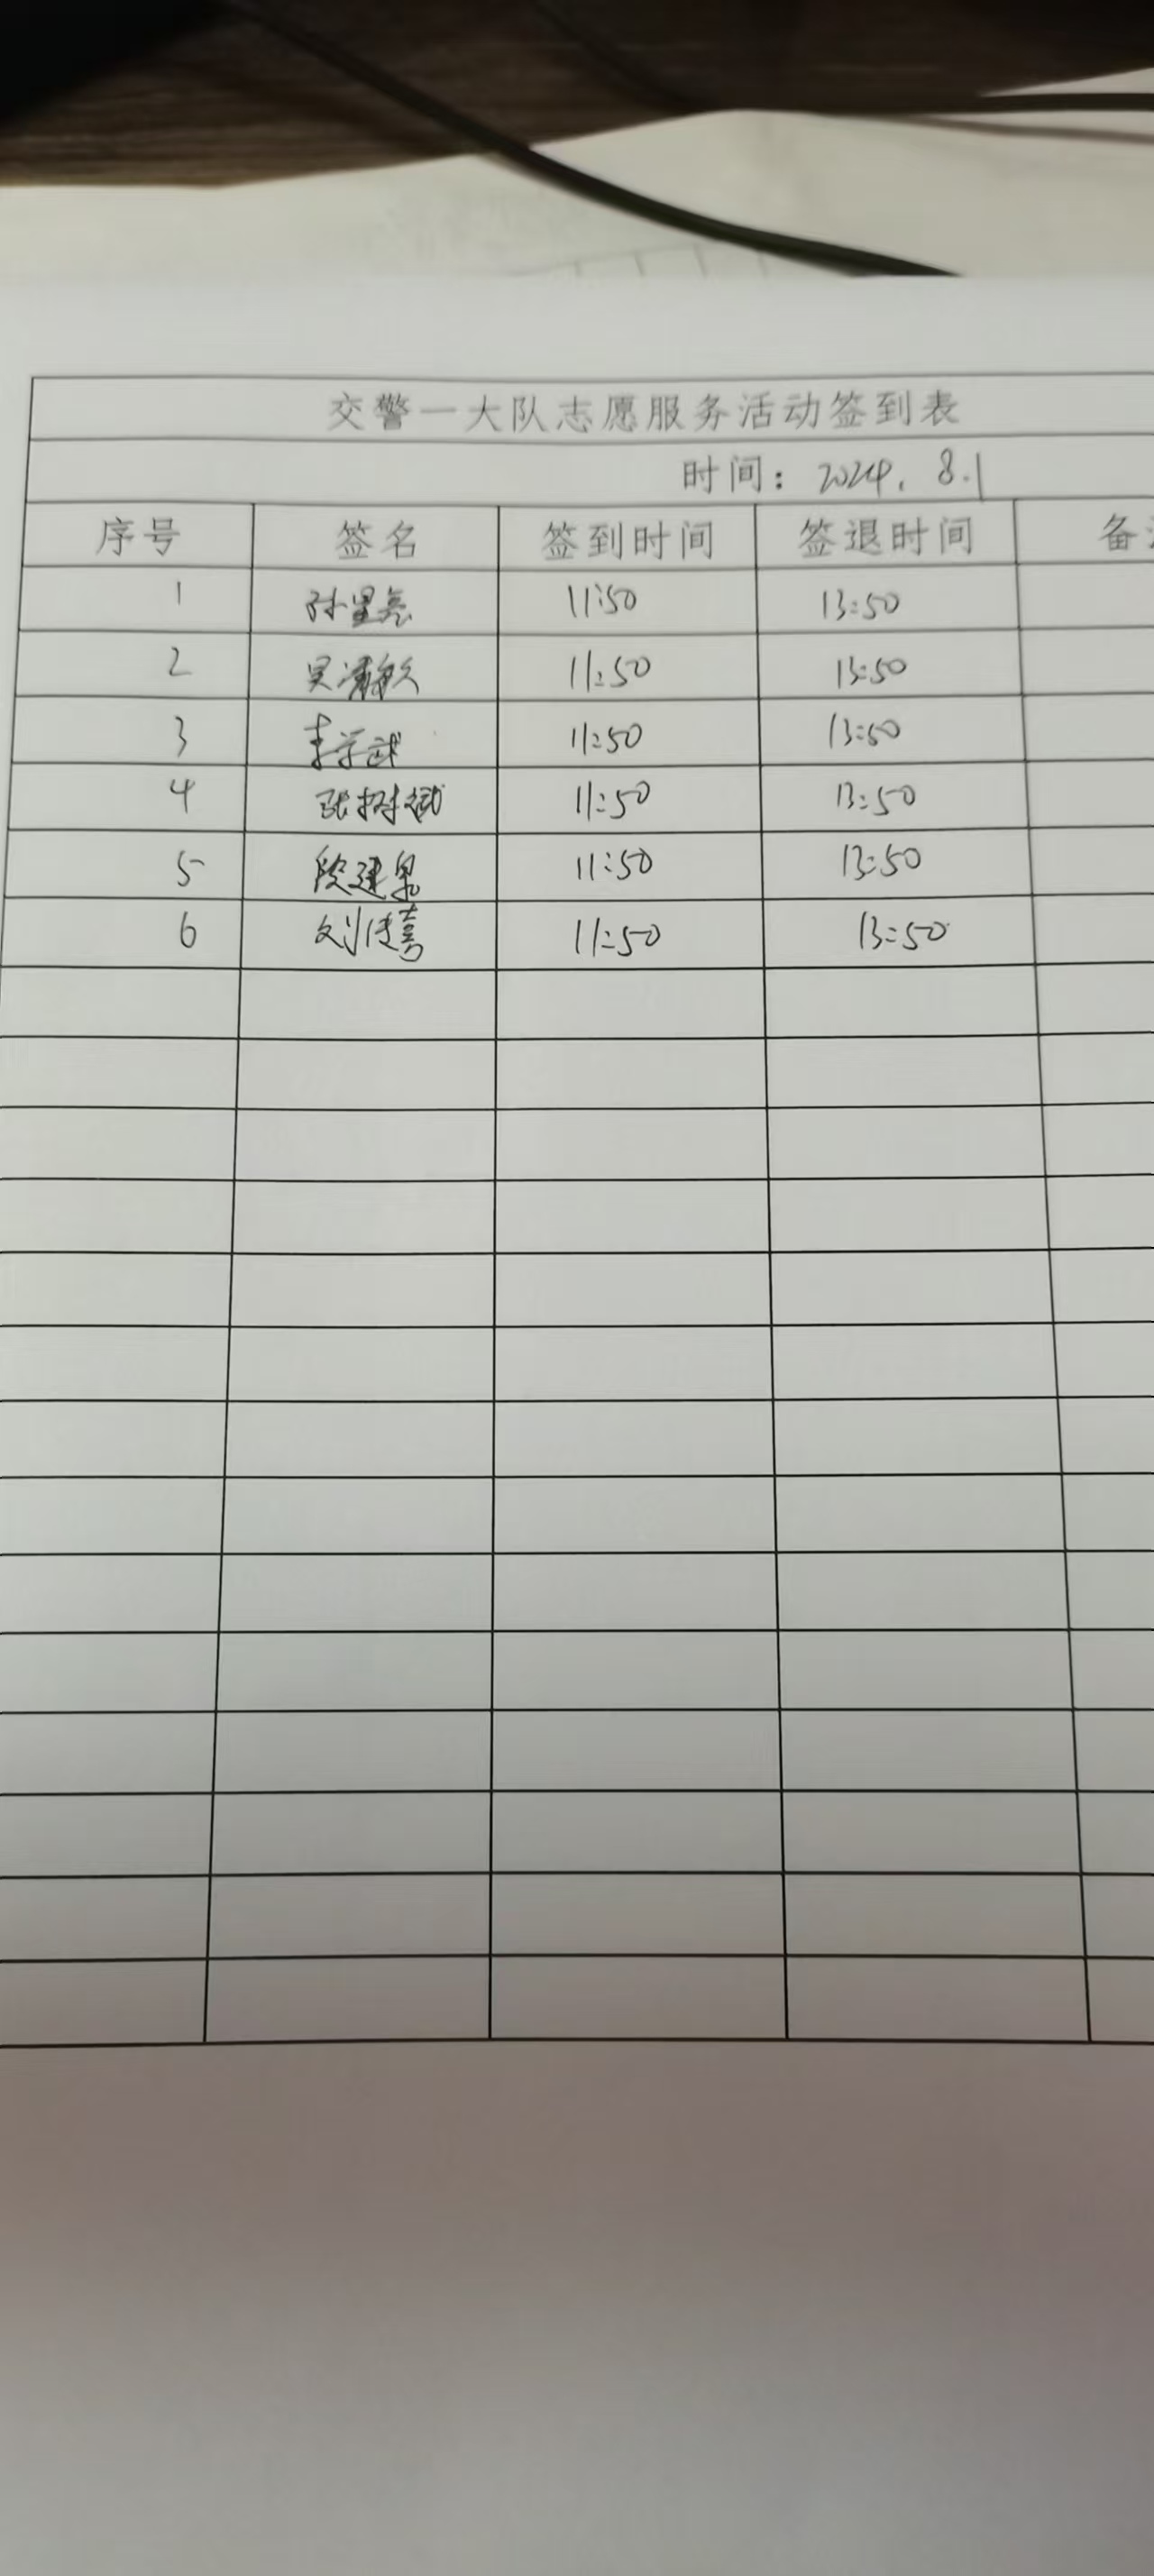 交警一大队志愿服务活动签到表
时间：2024.8.1
序号 签名 签到时间 签退时间 备
1 11:50 13:50
2 11:50 13:50
3 李学武 11:50 13:50
4 张树斌 11:50 13:50
5 段建泉 11:50 13:50
6 刘传喜 11:50 13:50